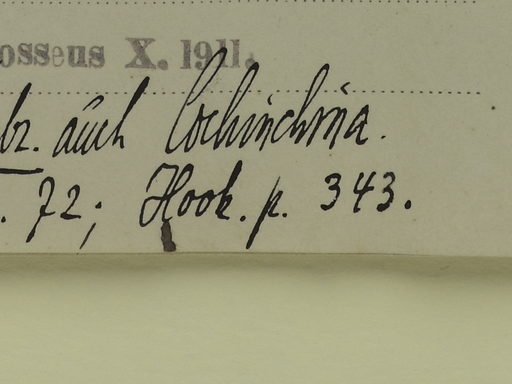 osseus X. 1911.
br. auch Cochinchina.
. 72; Hook. p. 343.